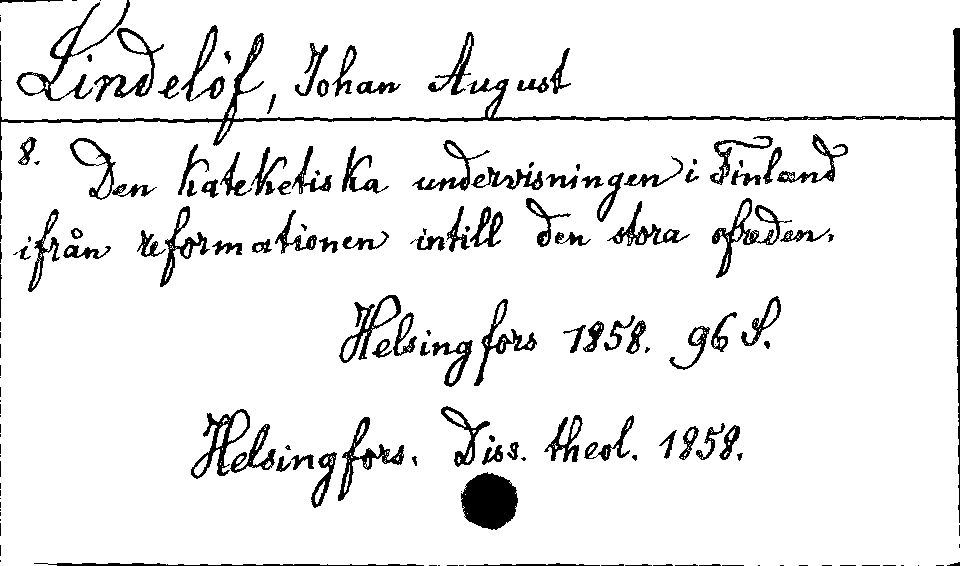 Lindelöf, Johan August
8. Den kateketiska undervisningen i Finland
ifrån reformationen intill den stora ofreden.
Helsingfors 1858. 96 S.
Helsingfors. Diss. theol. 1858.